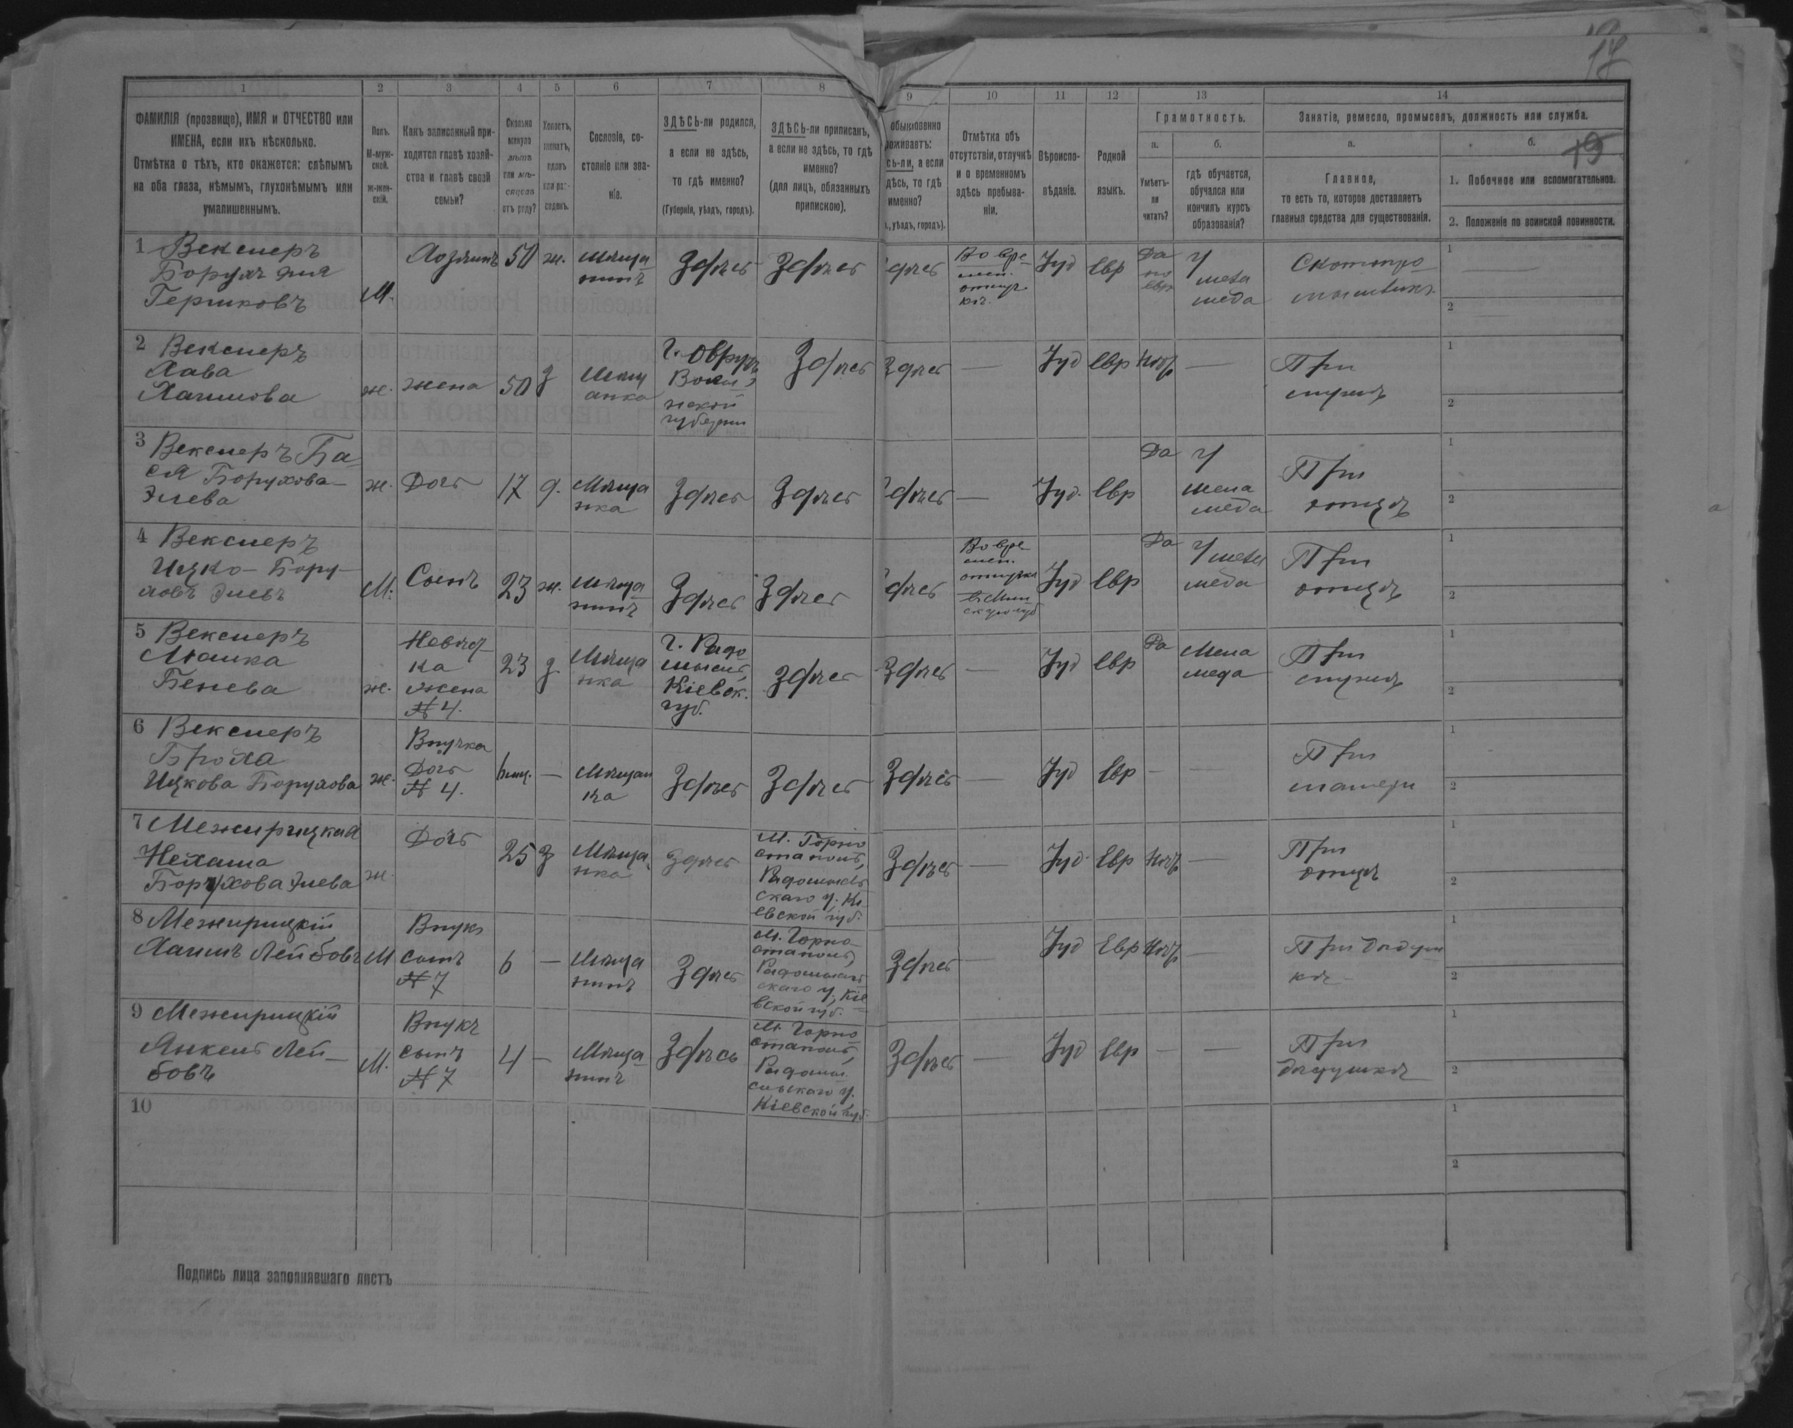 17
19
1 2 3 4 5 6 7 8 9 10 11 12 13 14
ФАМИЛІЯ (прозвище), ИМЯ и ОТЧЕСТВО или
ИМЕНА, если ихъ нѣсколько.
Отмѣтка о тѣхъ, кто окажется: слѣпымъ
на оба глаза, нѣмымъ, глухонѣмымъ или
умалишеннымъ.
Полъ.
М-муж-
ской.
ж-жен-
скій.
Какъ записанный при-
ходится главѣ хозяй-
ства и главѣ своей
семьи?
Сколько
минуло
лѣтъ
или мѣ-
сяцевъ
отъ роду?
Холостъ,
женатъ,
вдовъ
или раз-
веденъ.
Сословіе, со-
стояніе или зва-
ніе.
ЗДѢСЬ-ли родился,
а если не здѣсь,
то гдѣ именно?
(Губернія, уѣздъ, городъ).
ЗДѢСЬ-ли приписанъ,
а если не здѣсь, то гдѣ
именно?
(для лицъ, обязанныхъ
припискою).
обыкновенно
живаетъ:
сь-ли, а если
здѣсь, то гдѣ
именно?
уѣздъ, городъ).
Отмѣтка объ
отсутствіи, отлучкѣ
и о временномъ
здѣсь пребыва-
ніи.
Вѣроиспо-
вѣданіе.
Родной
языкъ.
Грамотность.
а.
Умѣетъ-
ли
читать?
б.
гдѣ обучается,
обучался или
кончилъ курсъ
образованія?
Занятіе, ремесло, промыселъ, должность или служба.
а.
Главное,
то есть то, которое доставляетъ
главныя средства для существованія.
б.
1. Побочное или вспомогательное.
2. Положеніе по воинской повинности.
1 Векслеръ
Борухъ Элія
Гершковъ
М. Хозяинъ 50 ж. Мѣща
нинъ Здѣсь Здѣсь здѣсь
Во вре-
мен.
отлуч
кѣ.
Іуд Евр Да
по
евр
У
мела
меда
Скотопро
мышлен
1
2
2 Векслеръ
Хава
Хаимова
ж. жена 50 з Мѣщ
анка
г. Овручъ
Волы
нской
губерніи
Здѣсь Здѣсь — Іуд Евр Нѣтъ —
При
мужѣ
1
2
3 Векслеръ Ба-
ся Борухова-
Элева
ж. Дочь 17 д. Мѣща
нка Здѣсь Здѣсь Здѣсь — Іуд. Евр Да
У
мела
меда
При
отцѣ
1
2
4 Векслеръ
Ицко-Бору-
ховъ Элевъ
М. Сынъ 23 ж. Мѣща
нинъ Здѣсь Здѣсь здѣсь
Во вре-
мен.
отлучкѣ
въ Мин
скую губ
Іуд Евр Да
У мела
меда
При
отцѣ
1
2
5 Векслеръ
Бенева
ж.
Невѣст
ка
жена
№ 4.
23 з Мѣща
нка
г. Радо
мысль
Кіевск.
губ.
Здѣсь Здѣсь — Іуд Евр Да
Мела
меда
При
мужѣ
1
2
6 Векслеръ
Броха
Ицкова Борухова
ж.
Внучка
Дочь
№ 4.
6 мц. — Мѣщан
ка Здѣсь Здѣсь Здѣсь — Іуд Евр — —
При
матери
1
2
7 Межирицкая
Нехама
Борухова Элева
ж Дочь 25 з Мѣща
нка Здѣсь
М. Горно
стаполь,
Радомысль
скаго у. Кі
евской губ.
Здѣсь — Іуд Евр Нѣтъ —
При
отцѣ
1
2
8 Межирицкій
Хаимъ Лейбовъ
М
Внукъ
сынъ
№ 7
6 — Мѣща
нинъ Здѣсь
М. Горно-
стаполь,
Радомысль
скаго у, Кіе
вской губ.
Здѣсь — Іуд Евр Нѣтъ —
При дѣдуш
кѣ
1
2
9 Межирицкій
Янкель Лей-
бовъ
М.
Внукъ
сынъ
№ 7
4 — Мѣща
нинъ Здѣсь
М. Горно
стаполь,
Радомы
сльскаго у.
Кіевской губ.
Здѣсь — Іуд Евр — —
При
дѣдушкѣ
1
2
10
1
2
Подпись лица заполнявшаго листъ